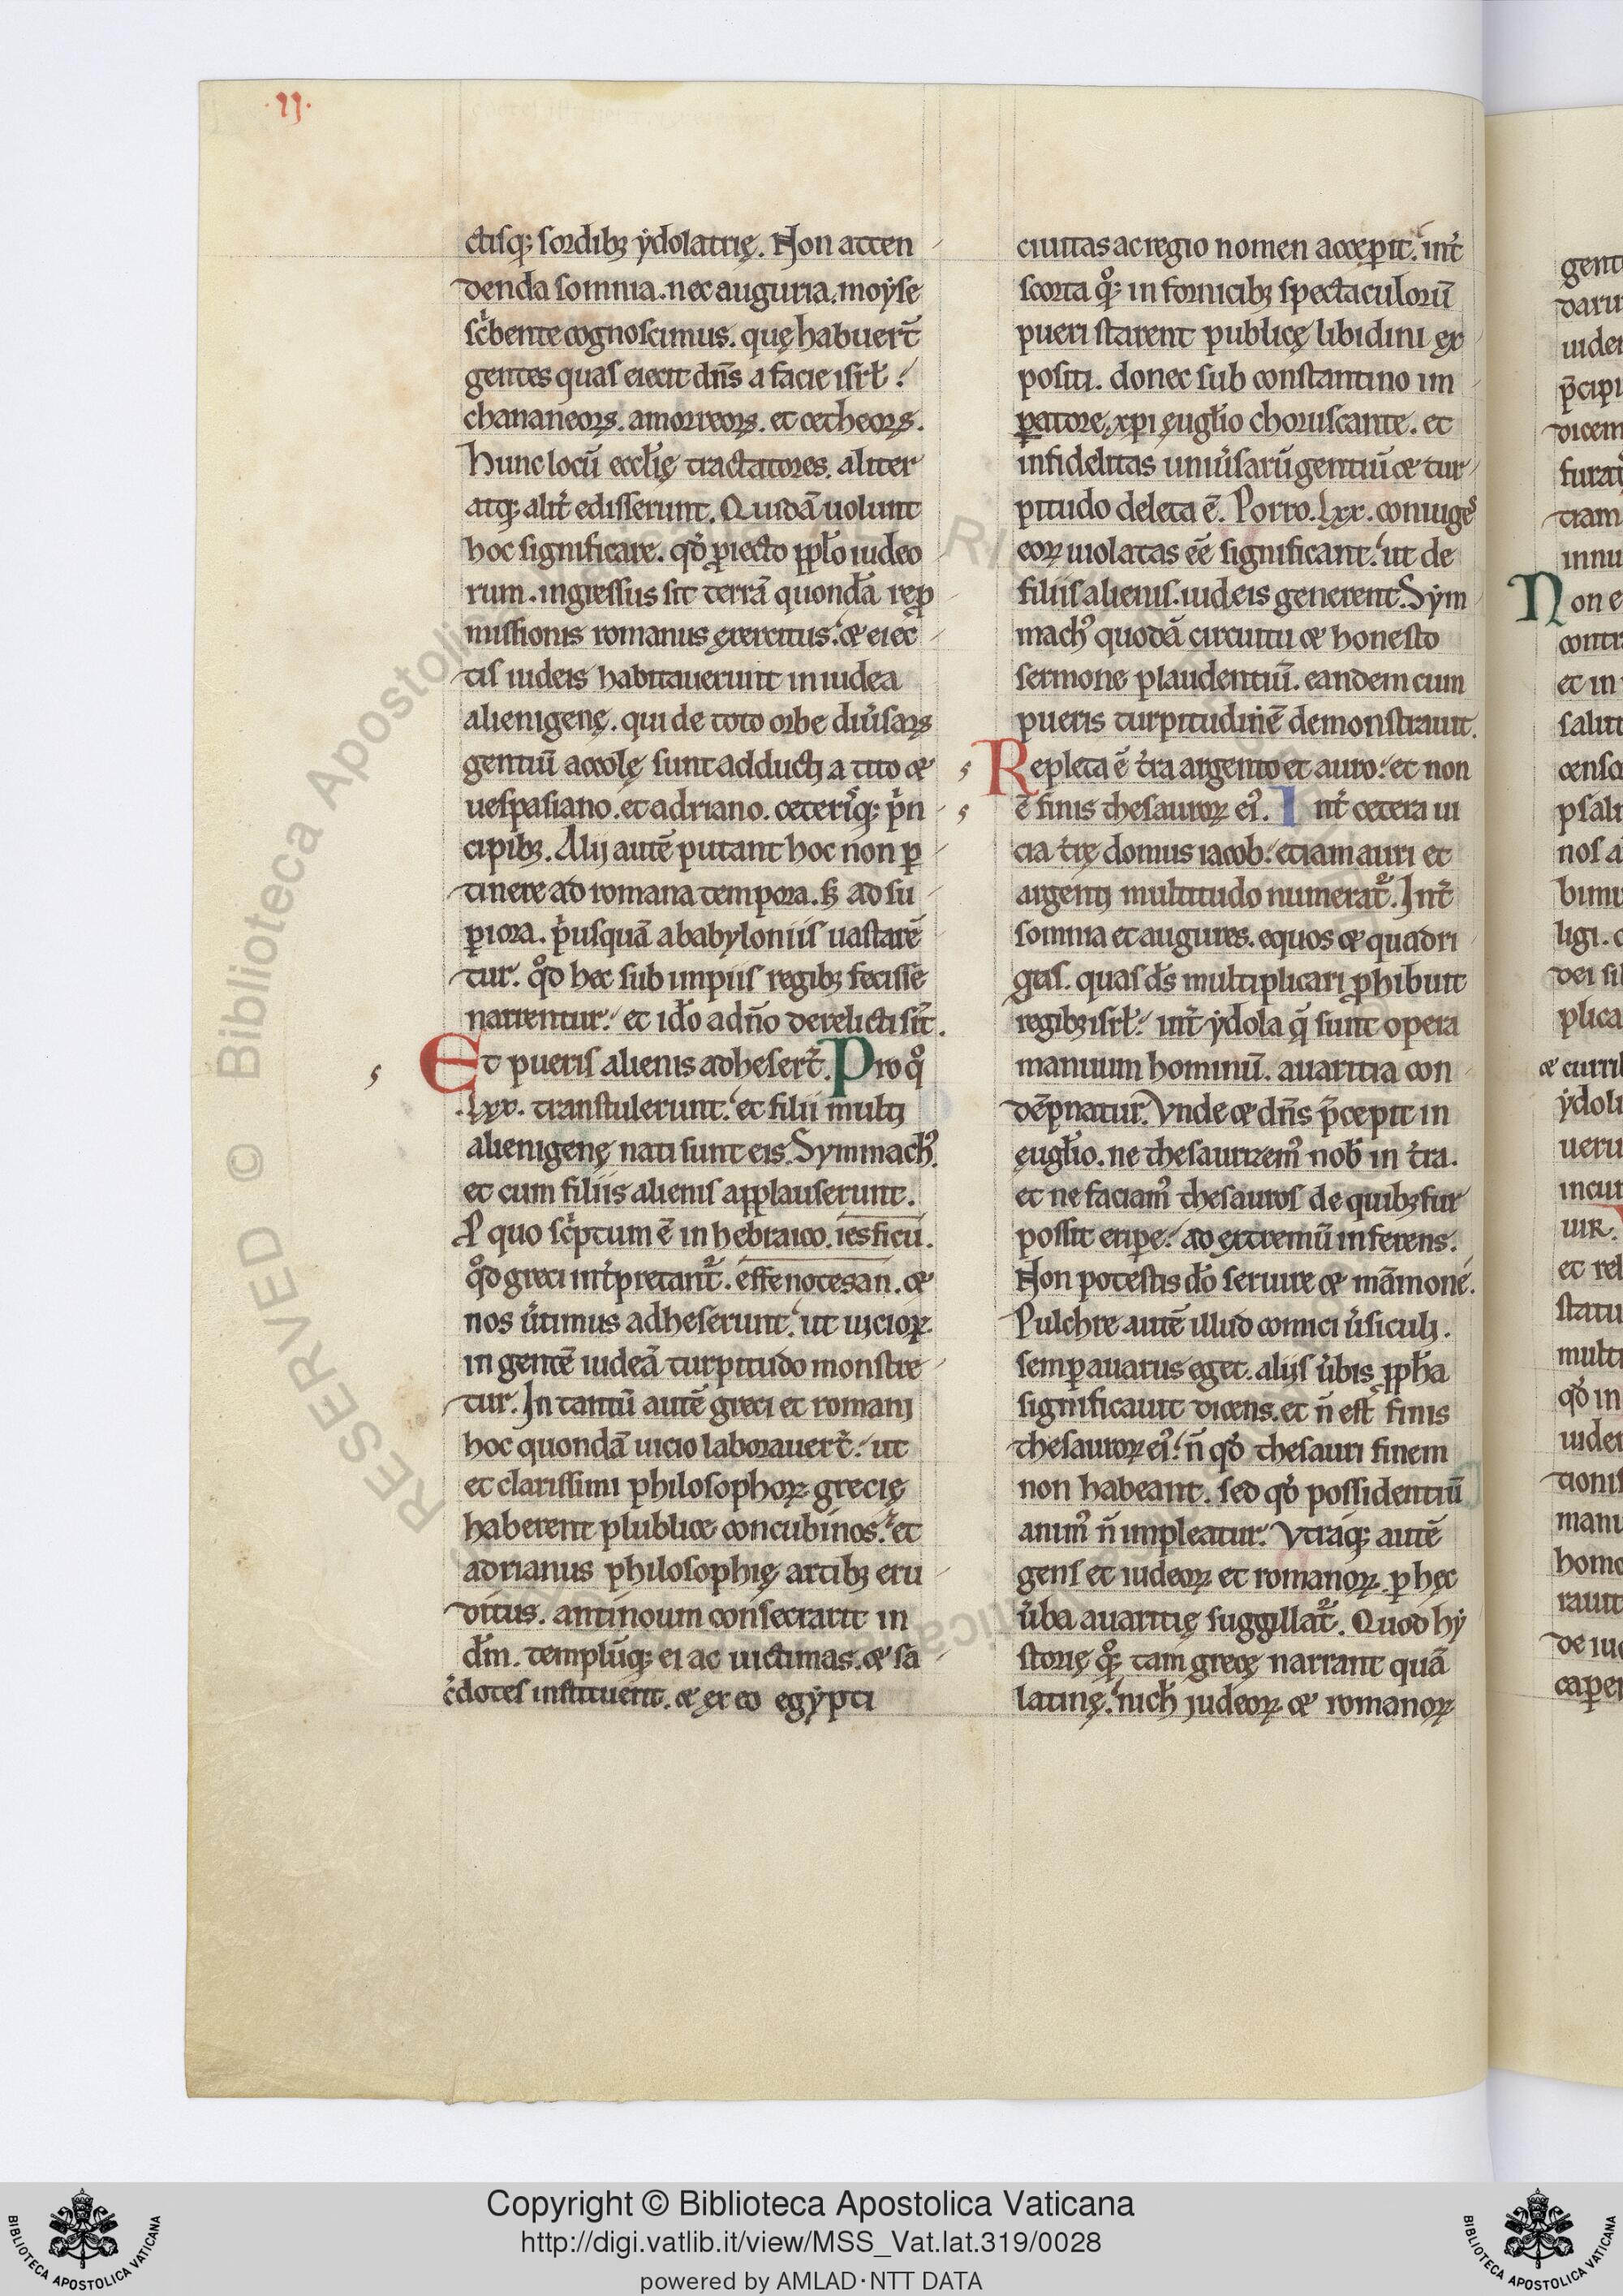 ·11·
ctisq; sordibꝫ ẏdolatrię. Non atten
denda somnia. nec auguria. moẏse
sc̓bente cognoscimus. quę habuer̄t
gentes quas eiecit dn̄s a facie isrƚ.
chananeoꝝ. amorreoꝝ. et cetheoꝝ.
Hunc locū eccƚię tractatores. aliter
atq; alit̓ edisserunt. Quidā uolunt
hoc significare. qđ ꝓiecto ppƚo iudeo
rum. ingressus sit terrā quondā reꝓ
missionis romanus exercitus. ⁊ eiec
tis iudeis habitauerunt in iudea
alienigenę. qui de toto orbe diu̓saꝝ
gentiū accolę sunt adducti a tito ⁊
uespasiano. et adriano. ceteriq; p̓n
cipibꝫ. Alij autē putant hoc non ꝑ
tinere ad romana tempora. sꝫ ad su
ꝑiora. p̓usquā a babyloniis uastarē
tur. qͦd hec sub impiis regibꝫ fecisse
narrentur. et iđo a dn̄o derelicti sīt.
Et pueris alienis adheser̄t. Pro qͦ
.lxx. transtulerunt. et filii multi
alienigenę nati sunt eis. Symmachꝰ.
et cum filiis alienis applauserunt.
P quo sc̓ptum ē in hebraico. iesficu.
qͦd greci int̓pretant᷑. esfenotesan. ⁊
nos u̓timus adheserunt. ut uicioꝝ
in gentē iudeā turpitudo monstre
tur. In tantū autē greci et romani
hoc quondā uicio laborauer̄t. ut
et clarissimi philosophoꝝ grecię
haberent plublice concubinos. et
adrianus philosophię artibꝫ eru
ditus. antinoum consecrarit in
dm̄. templūq; ei ac uictimas. ⁊ sa
c̓dotes instituerit. ⁊ ex eo egẏpti
ciuitas ac regio nomen acceꝑit. int̓
scorta qͦq; in fornicibꝫ spectaculorū
pueri starent publicę libidini ex
positi. donec sub constantino im
ꝑatore, xp̄i euglͥo choruscante. et
infidelitas uniu̓sarū gentiū ⁊ tur
pitudo deleta ē. Porro. lxx. coniuges
eoꝝ uiolatas eē significant. ut de
filiis alienis. iudeis generent. Sym
machꝰ quodā circuitu ⁊ honesto
sermone plaudentiū. eandem cum
pueris turpitudinē demonstrauit.
Repleta ē t̓ra argento et auro. et non
ē finis thesauroꝝ eiꝰ. Int̓ cetera ui
cia t̓rę domus iacob. etiam auri et
argenti multitudo numerat᷑. Int̓
somnia et augures. equos ⁊ quadri
gas. quas ds̄ multiplicari ꝓhibuit
regibꝫ isrƚ. int̓ ẏdola q̄ sunt opera
manuum hominū. auaritia con
dēpnatur. Vnde ⁊ dn̄s p̄cepit in
euglͥo. ne thesaurizemꝰ nob̄ in t̓ra.
et ne faciamꝰ thesauros de quibꝫ fur
possit eriꝑe. ad extremū inferens.
Non potestis dō seruire ⁊ māmone.
Pulchre autē illud comici u̓siculi.
semꝑ auarus eget. alijs u̓bis ꝓpħa
significauit dicens. et n̄ est finis
thesauroꝝ eiꝰ. n̄ qđ thesauri finem
non habeant. sed qđ possidentiū
animꝰ n̄ impleatur. Vtraq; autē
gens et iudeoꝝ et romanoꝝ. ꝑ hęc
u̓ba auaritię suggillat᷑. Quod hẏ
storię qͦq; tam grecę narrant quā
latinę. nich̄ iudeoꝝ ⁊ romanoꝝ
RESERVED © Biblioteca Apostolica
Copyright © Biblioteca Apostolica Vaticana
http://digi.vatlib.it/view/MSS_Vat.lat.319/0028
powered by AMLAD·NTT DATA
BIBLIOTECA APOSTOLICA VATICANA
BIBLIOTECA APOSTOLICA VATICANA